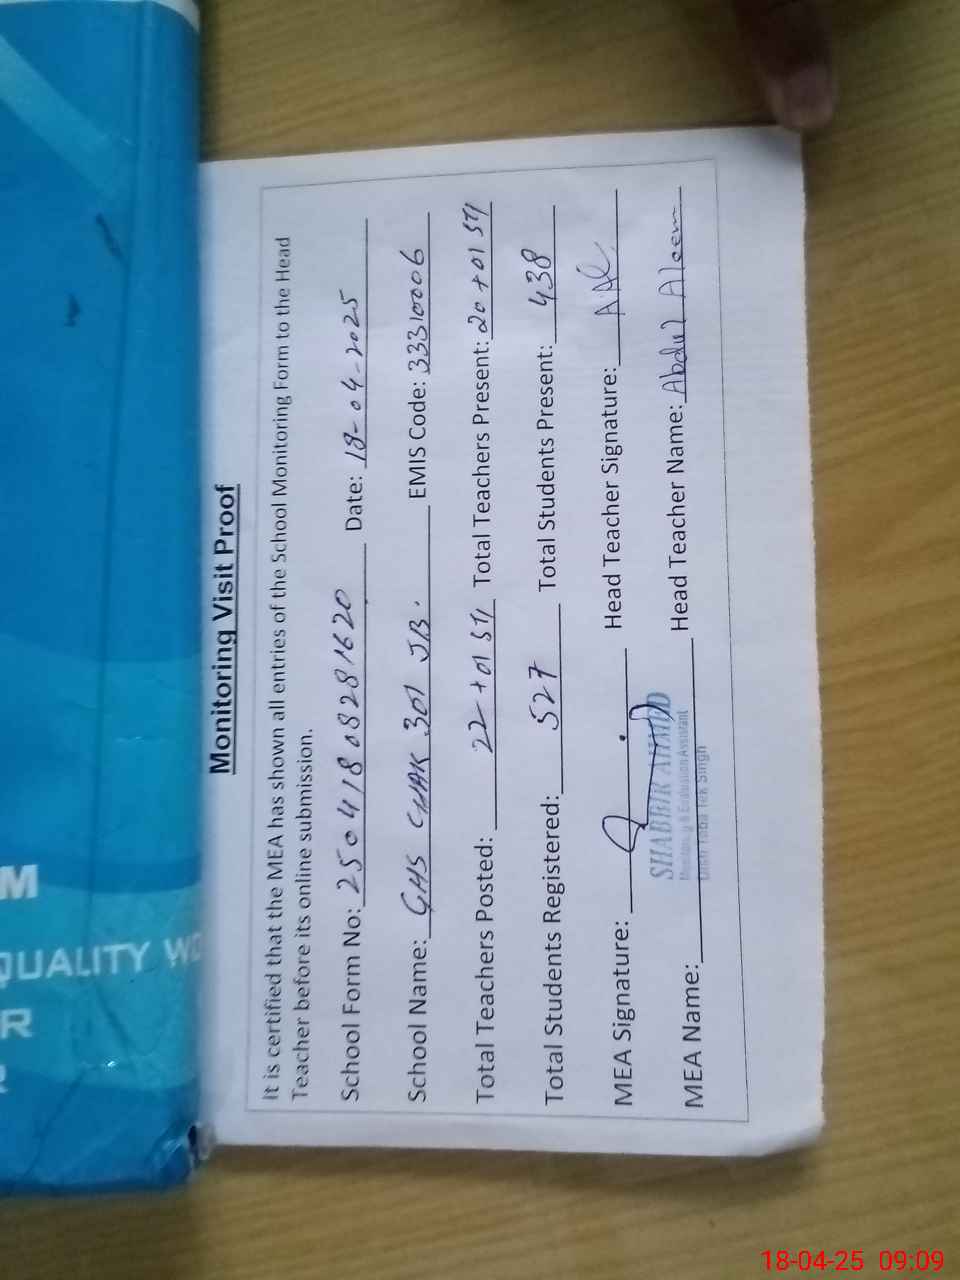 Monitoring Visit Proof
It is certified that the MEA has shown all entries of the School Monitoring Form to the Head
Teacher before its online submission.
School Form No: 25041808281620 Date: 18-04-2025
School Name: GHS CHAK 301 JB. EMIS Code: 33310006
Total Teachers Posted: 22 +01 STI Total Teachers Present: 20 +01 STI
Total Students Registered: 527 Total Students Present: 438
MEA Signature: Head Teacher Signature:
SHABBIR AHMED
Monitoring & Evaluation Assistant
Distt: Toba Tek Singh
MEA Name: Head Teacher Name: Abdul Aleem
M
QUALITY WO
R
18-04-25 09:09